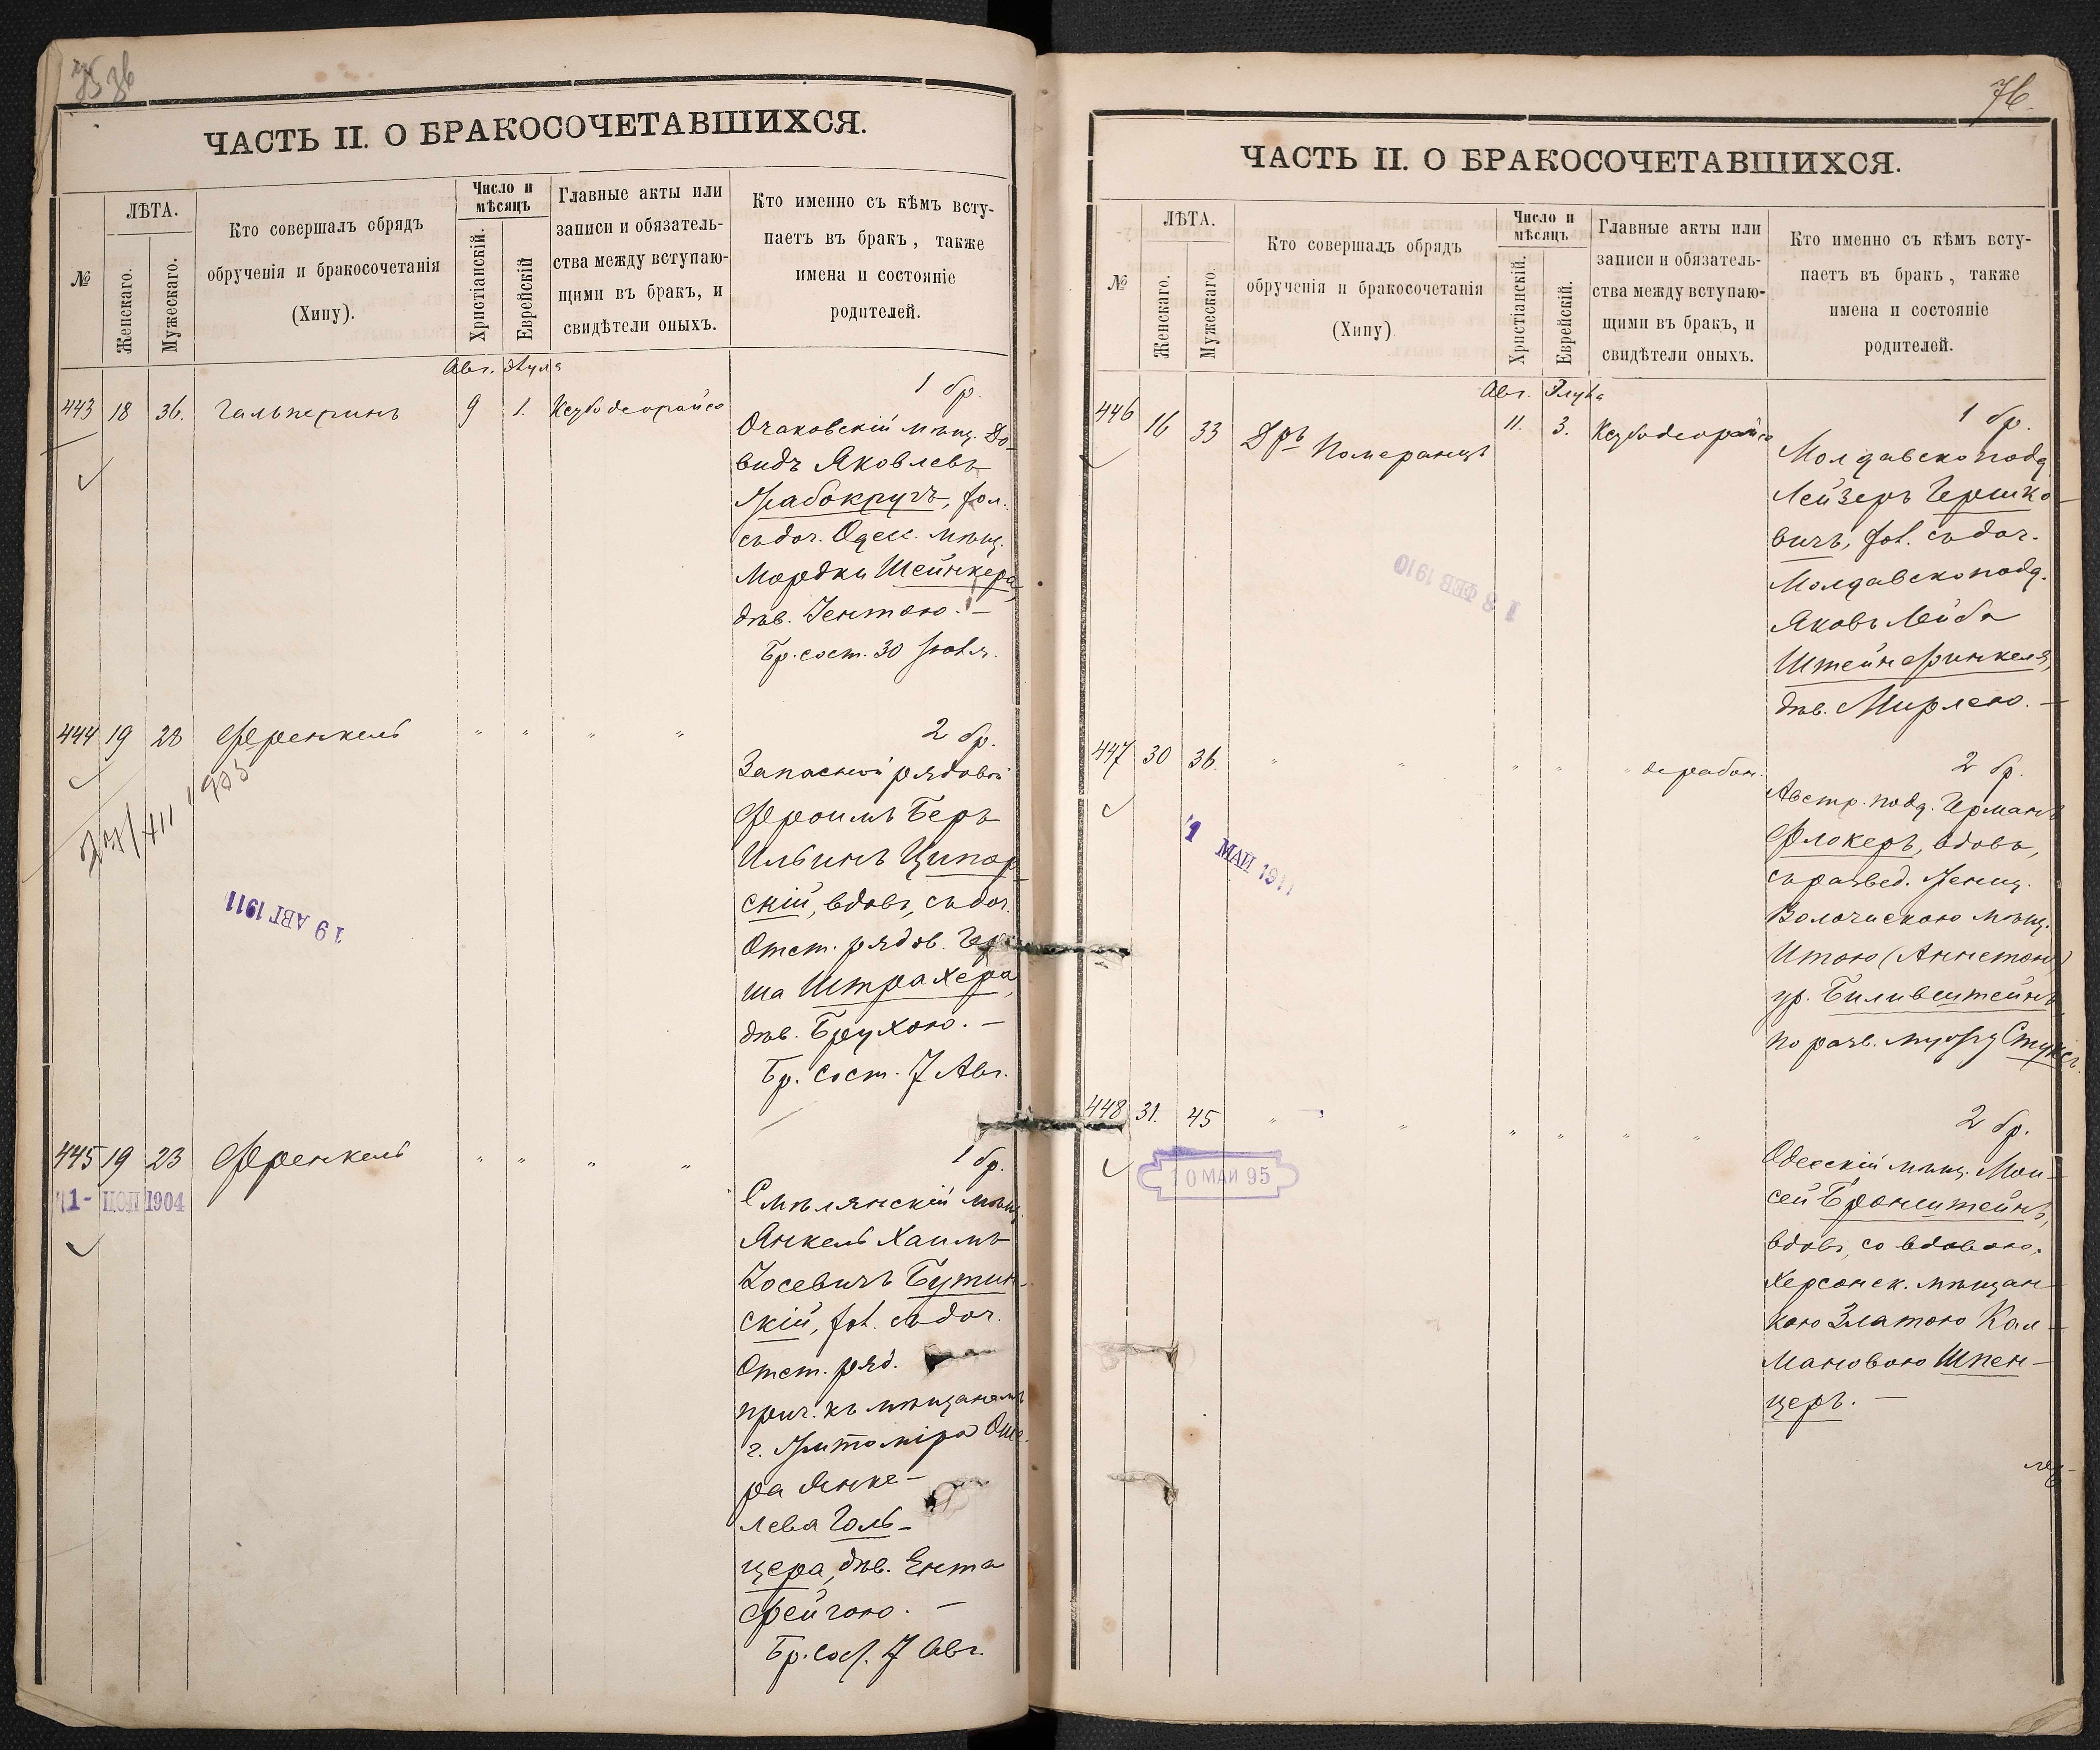 ЧАСТЬ II. О БРАКОСОЧЕТАВШИХСЯ.
№
ЛѢТА.
Женскаго.
Мужескаго.
Кто совершалъ обрядъ
обрученія и бракосочетанія
(Хипу).
Число и
мѣсяцъ
Христіанскій.
Еврейскій
Главные акты или
записи и обязатель-
ства между вступаю-
щими въ бракъ, и
свидѣтели оныхъ.
Кто именно съ кѣмъ всту-
паетъ въ бракъ, также
имена и состояніе
родителей.
Авг.
443 18 36. Гальперинъ 9 1.
1 бр.
Очаковскій мѣщ. До-
видъ Яковлевъ
Жабокругъ, хол.
съ доч. Одесс. мѣщ.
Мордки Шейнкера,
дѣв. Іентою. —
Бр. сост. 30 Іюля.
444 19 28 Френкель " " " "
2 бр.
Запасной рядовой
Фроимъ Беръ
Ильинъ Ципор-
скій, вдов., съ доч.
Отст. рядов. Гер-
ша Штрахера,
дѣв. Брухою. —
Бр. сост. 7 Авг.
19 АВГ 1911
445 19 23 Френкель " " " "
1904
1 бр.
Смѣлянскій мѣщ.
Янкель Хаимъ
Іосевичъ Бутин-
скій, хол. съ доч.
Отст. ряд.
прич. къ мѣщанамъ
г. Житоміра Оше-
ра Янке-
лева Голь-
цера, дѣв. Ента
Фейгою. —
Бр. сост. 7 Авг.
76.
ЧАСТЬ II. О БРАКОСОЧЕТАВШИХСЯ.
№
ЛѢТА.
Женскаго.
Мужескаго.
Кто совершалъ обрядъ
обрученія и бракосочетанія
(Хипу)
Число и
мѣсяцъ
Христіанскій.
Еврейскій.
Главные акты или
записи и обязатель-
ства между вступаю-
щими въ бракъ, и
свидѣтели оныхъ.
Кто именно съ кѣмъ всту-
паетъ въ бракъ, также
имена и состояніе
родителей.
Авг. Элула
446 16 33 Дръ Померанцъ 11. 3.
1 бр.
Молдавскоподд.
Лейзеръ Гершко-
вичъ, хол. съ доч.
Молдавскоподд.
Яковъ Лейба
Штейнфинкеля,
дѣв. Мирлею. —
13 ФЕВ 1910
447 30 36. " " " " "
2 бр.
Австр. подд. Германъ
Флокеръ, вдовъ,
съ развед. женщ.
Волочискою мѣщ.
Итою (Аннетою)
ур.
по разв. мужу
1 МАЙ 1911
448 31. 45 " " " " " "
10 МАЙ 95
2 бр.
Одесскій мѣщ. Мои-
сей Бронштейнъ,
вдовъ, со вдовою,
Херсонск. мѣщан-
кою Златою Кал-
мановою Шпен-
церъ. —